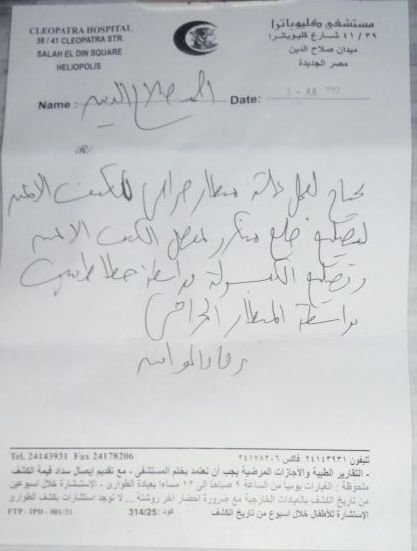 CLEOPATRA HOSPITAL
39 / 41 CLEOPATRA STR.
SALAH EL DIN SQUARE
HELIOPOLIS
مستشفى كليوباترا
٣٩ / ٤١ شارع كليوباترا
ميدان صلاح الدين
مصر الجديدة
Name : صلاح الدين Date:
R/
يحتاج لعمل عملية منظار جراحى للكتف الايمن
لتصليح خلع متكرر لمفصل الكتف الايمن
وتصليح الكبسولة بواسطة خطاطيف
بواسطة المنظار الجراحى
Tel. 24143931 Fax 24178206
تليفون ٢٤١٤٣٩٣١ فاكس ٢٤١٧٨٢٠٦
- التقارير الطبية والأجازات المرضية يجب أن تعتمد بختم المستشفى - مع تقديم إيصال سداد قيمة الكشف
ملحوظة : الغيارات يوميا من الساعة ٩ صباحا إلى ١٢ مساءا بعيادة الطوارى - الاستشارة خلال اسبوعين
من تاريخ الكشف بالعيادات الخارجية مع ضرورة احضار اخر روشتة .. لا توجد استشارات بكشف الطوارى
الاستشارة للأطفال خلال اسبوع من تاريخ الكشف
كود: 314/25
FTP - IPD - 001/31